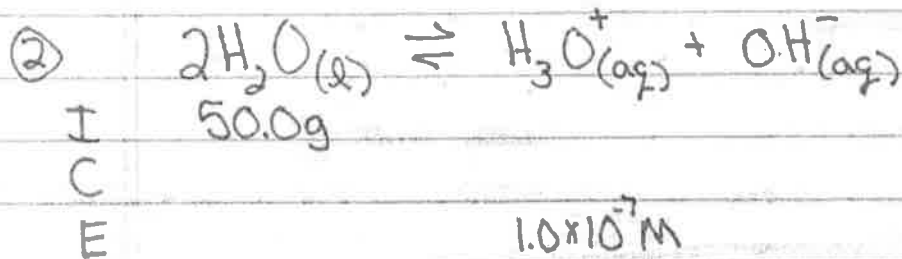 ② 2H₂O(l) ⇌ H₃O⁺(aq) + OH⁻(aq)
I 50.0g
C
E 1.0×10⁻⁷M